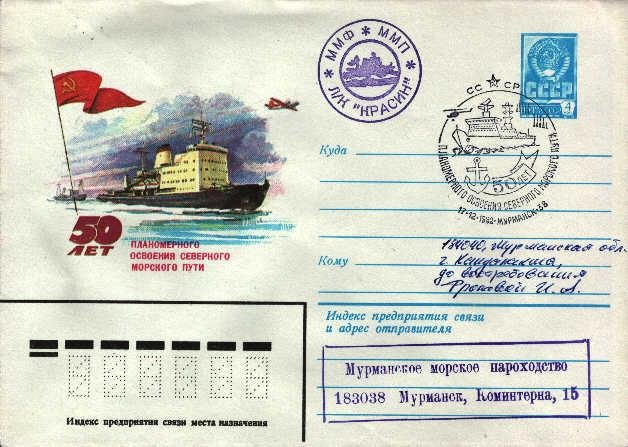 50
ЛЕТ
ПЛАНОМЕРНОГО
ОСВОЕНИЯ СЕВЕРНОГО
МОРСКОГО ПУТИ
* ММФ * ММП *
Л/К "КРАСИН"
СССР
4
СС СР
ПЛАНОМЕРНОГО ОСВОЕНИЯ СЕВЕРНОГО МОРСКОГО ПУТИ
50 ЛЕТ
17-12-1982-МУРМАНСК-38
Куда
Кому
184040, Мурманская обл.
г. Кандалакша,
до востребования
И. А.
Индекс предприятия связи
и адрес отправителя
Мурманское морское пароходство
183038 Мурманск, Коминтерна, 15
Индекс предприятия связи места назначения